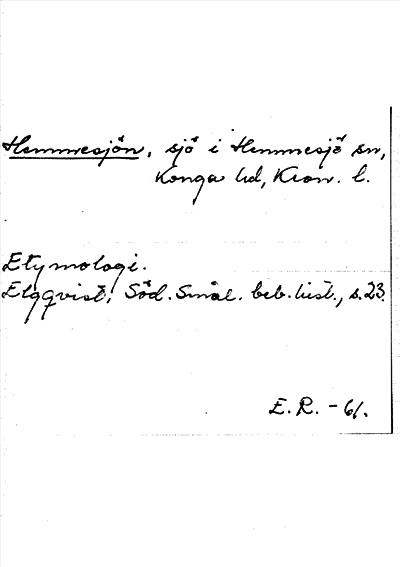 Hemmesjön, sjö i Hemmesjö sn,
Konga hd, Kron. l.
Etymologi.
Elqvist, Söd. Smål. beb. hist., s. 23.
E. R. - 61.